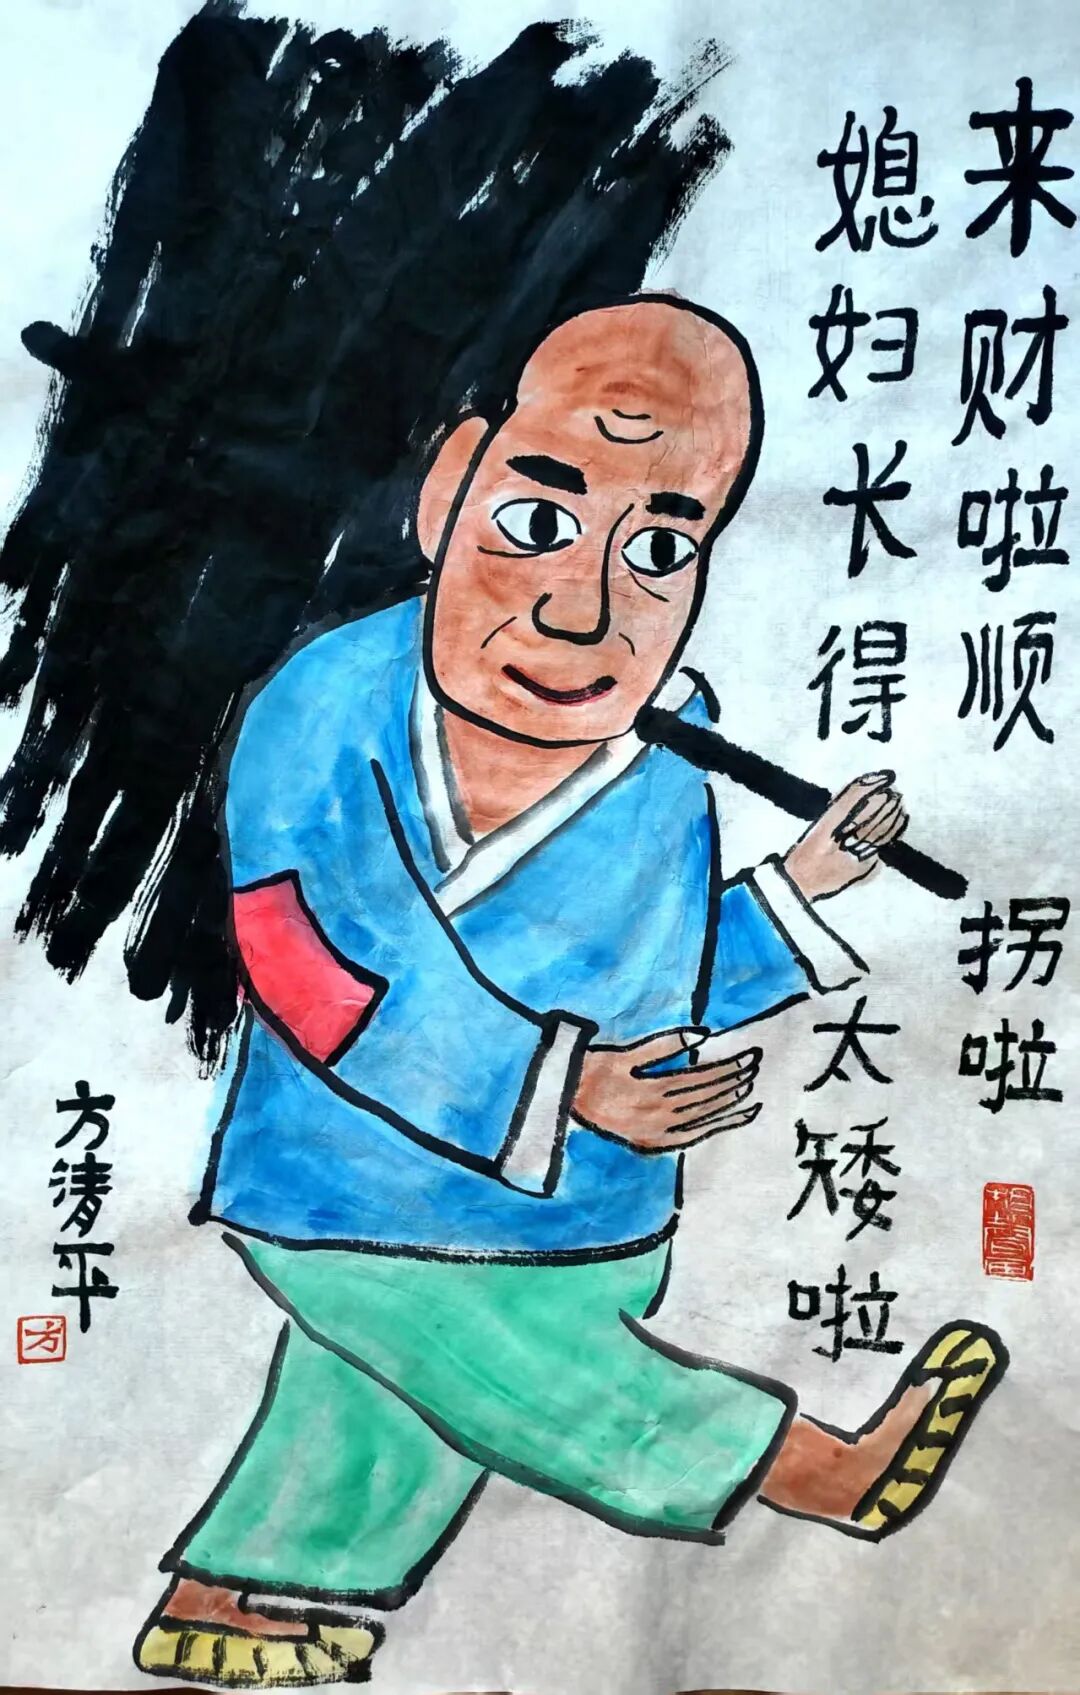 来财啦顺拐啦
媳妇长得太矮啦
方清平
方